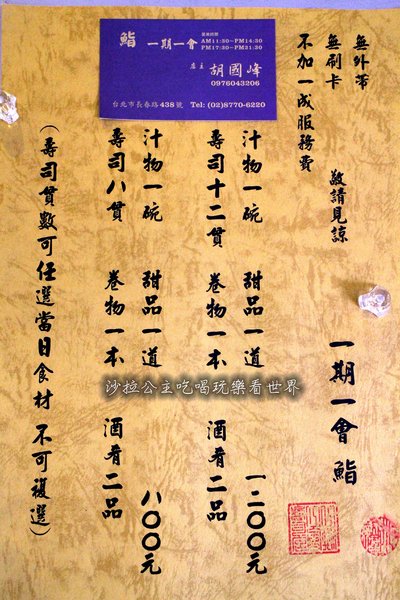 鮨 一期一會
營業時間
AM11:30~PM14:30
PM17:30~PM21:30
店主 胡國峰
0976043206
台北市長春路438號 Tel: (02)8770-6220
無外帶
無刷卡 敬請見諒
不加一成服務費
一期一會 鮨
壽司十二貫 卷物一本 酒肴二品
汁物一碗 甜品一道 一二００元
壽司八貫 卷物一本 酒肴二品
汁物一碗 甜品一道 八００元
(壽司貫數可任選當日食材 不可複選)
沙拉公主吃喝玩樂看世界